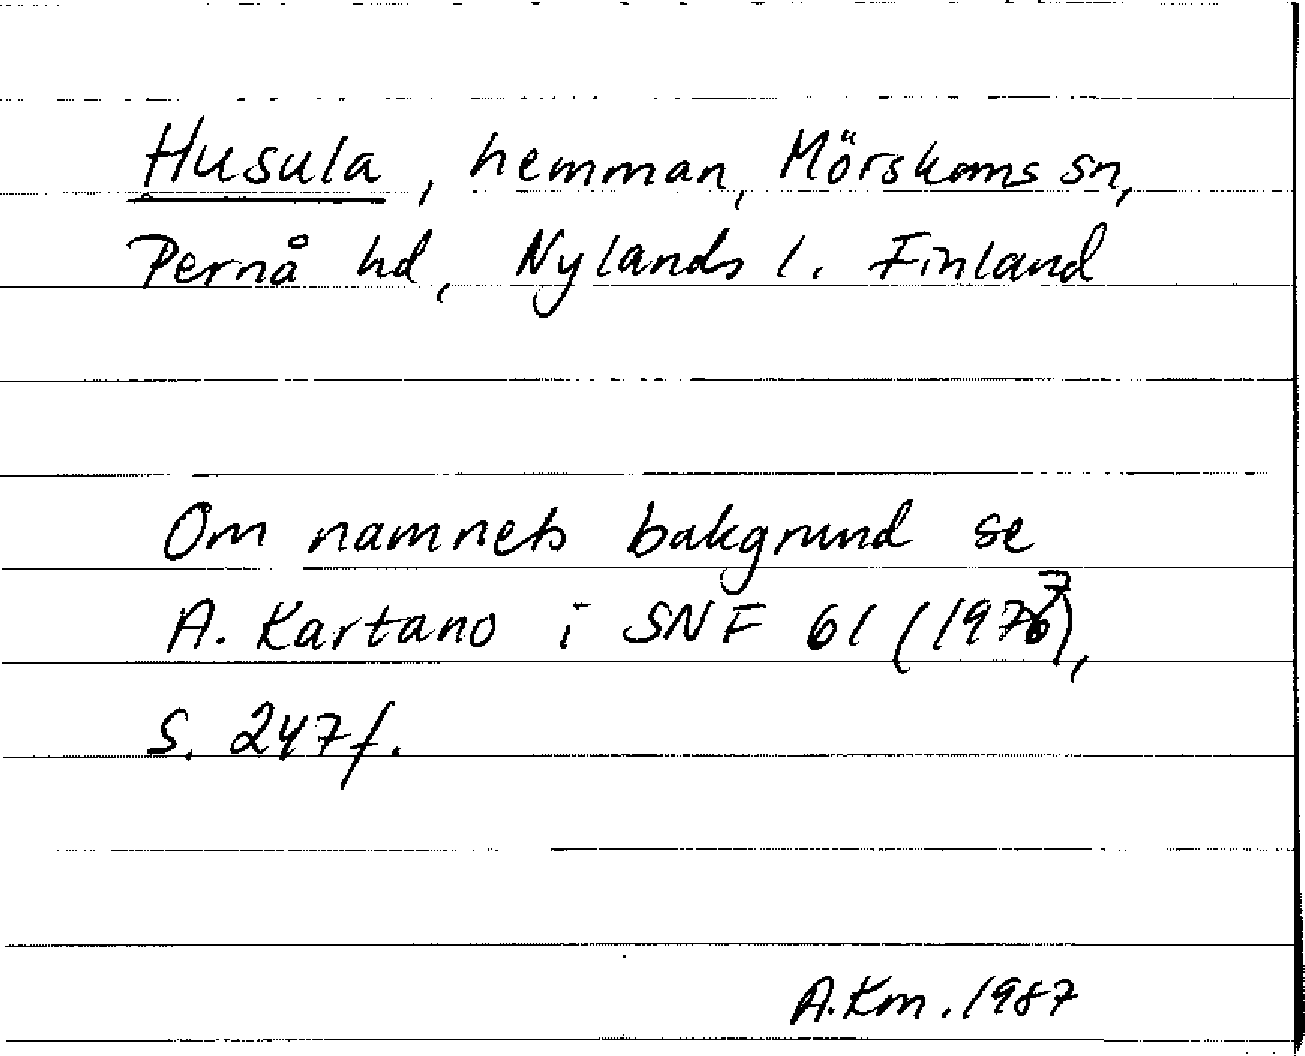 Husula, hemman, Mörskoms sn,
Pernå hd, Nylands l. Finland
Om namnets bakgrund se
A. Kartano i SNF 61 (1977),
S. 247f.
A.Km. 1987